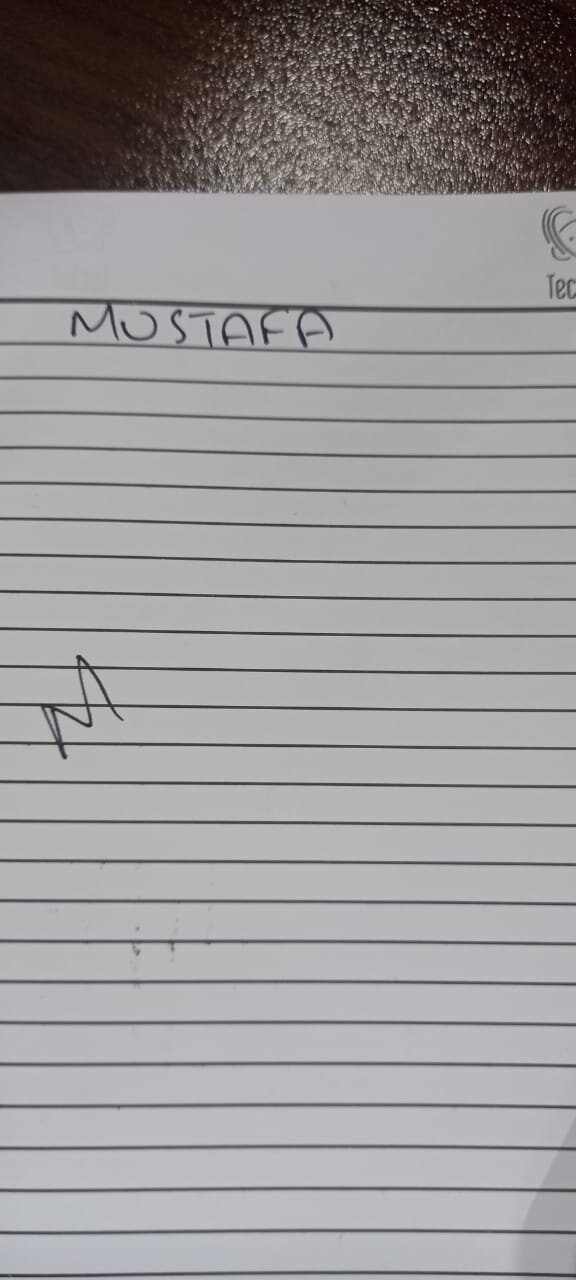 Tec
MUSTAFA
M